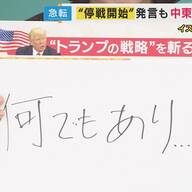 急転
“停戦開始”発言も 中東
イス
“トランプの戦略”を斬る
何でもあり...